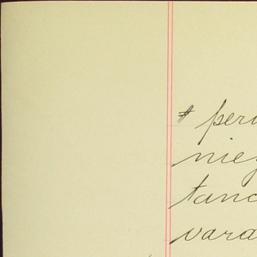 # peri
nie
tanc
vara